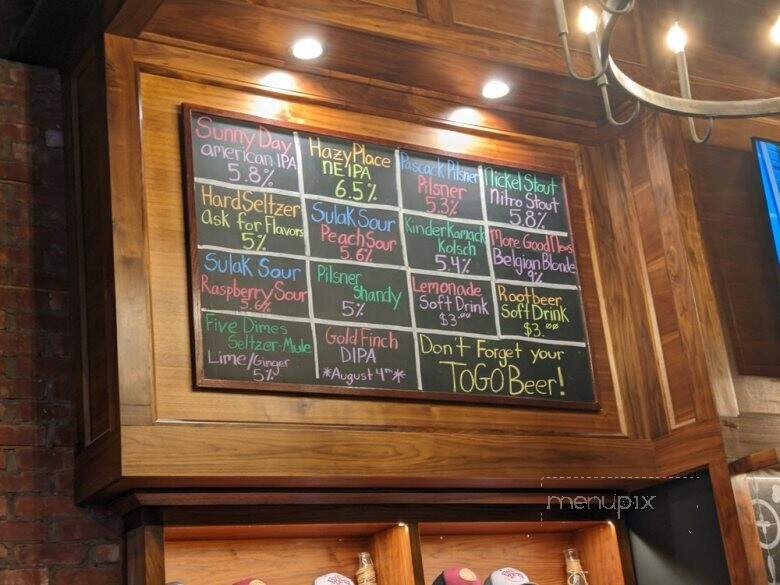 Sunny Day
american IPA
5.8%
Hazy Place
NE IPA
6.5%
Pascack Pilsner
Pilsner
5.3%
Nickel Stout
Nitro Stout
5.8%
Hard Seltzer
Ask for Flavors
5%
Sulak Sour
Peach Sour
5.6%
Kinderkamack
Kolsch
5.4%
More Good News
Belgian Blonde
9%
Sulak Sour
Raspberry Sour
5.6%
Pilsner
Shandy
5%
Lemonade
Soft Drink
$3.00
Rootbeer
Soft Drink
$3.00
Five Dimes
Seltzer-Mule
Lime/Ginger
5%
Gold Finch
DIPA
*August 4th*
Don't Forget your
TOGO Beer!
menupix